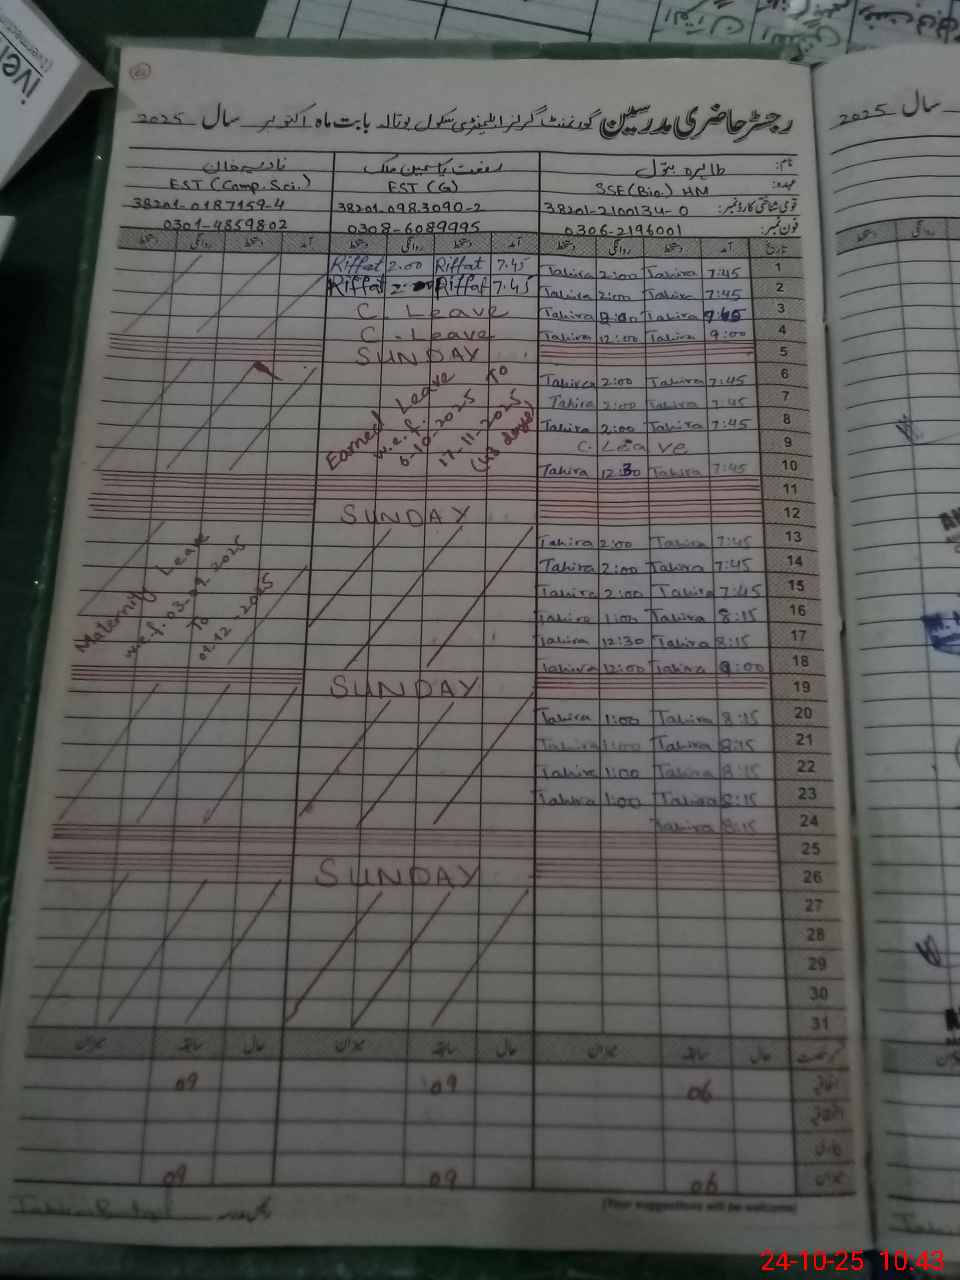 رجسٹر حاضری مدرسین گورنمنٹ گرلز ایلیمنٹری سکول بوتالہ بابت ماہ اکتوبر سال 2025
نام: طاہرہ بتول رفعت یاسمین ملک نادیہ خان
عہدہ: SSE(Bio.) HM EST (G) EST (Comp. Sci.)
قومی شناختی کارڈ نمبر: 38201-2100134-0 38201-0983090-2 38201-0187159-4
فون نمبر: 0306-2196001 0308-6089995 0301-4859802
تاریخ آمد دستخط روانگی دستخط آمد دستخط روانگی دستخط آمد دستخط روانگی دستخط
1 7:45 Tahira 2:00 Tahira 7.45 Riffat 2.00 Riffat
2 7:45 Tahira 2:00 Tahira 7.45 Riffat Riffat
3 Tahira Tahira C. Leave
4 9:00 Tahira 12:00 Tahira C. Leave
5 SUNDAY
6 7:45 Tahira 2:00 Tahira
7 7:45 Tahira 2:00 Tahira
8 7:45 Tahira 2:00 Tahira
9 C. Leave
10 7:45 Tahira 12:30 Tahira
Earned Leave
w.e.f.
6-10-2025 To
17-11-2025
11
12 SUNDAY
13 7:45 Tahira 2:00 Tahira
14 7:45 Tahira 2:00 Tahira
15 7:45 Tahira 2:00 Tahira
16 8:15 Tahira 1:00 Tahira
17 8:15 Tahira 12:30 Tahira
18 9:00 Tahira 12:00 Tahira
Maternity Leave
w.e.f. 03-09-2025
To
02-12-2025
19 SUNDAY
20 8:15 Tahira 1:00 Tahira
21 8:15 Tahira 1:00 Tahira
22 8:15 Tahira 1:00 Tahira
23 8:15 Tahira 1:00 Tahira
24 8:15 Tahira
25
26 SUNDAY
27
28
29
30
31
حال سابقہ میزان حال سابقہ میزان حال سابقہ میزان
اتفاقیہ 06 09 09
میزان 06 09 09
(Your suggestions will be welcome)
سال 2025
24-10-25 10:43